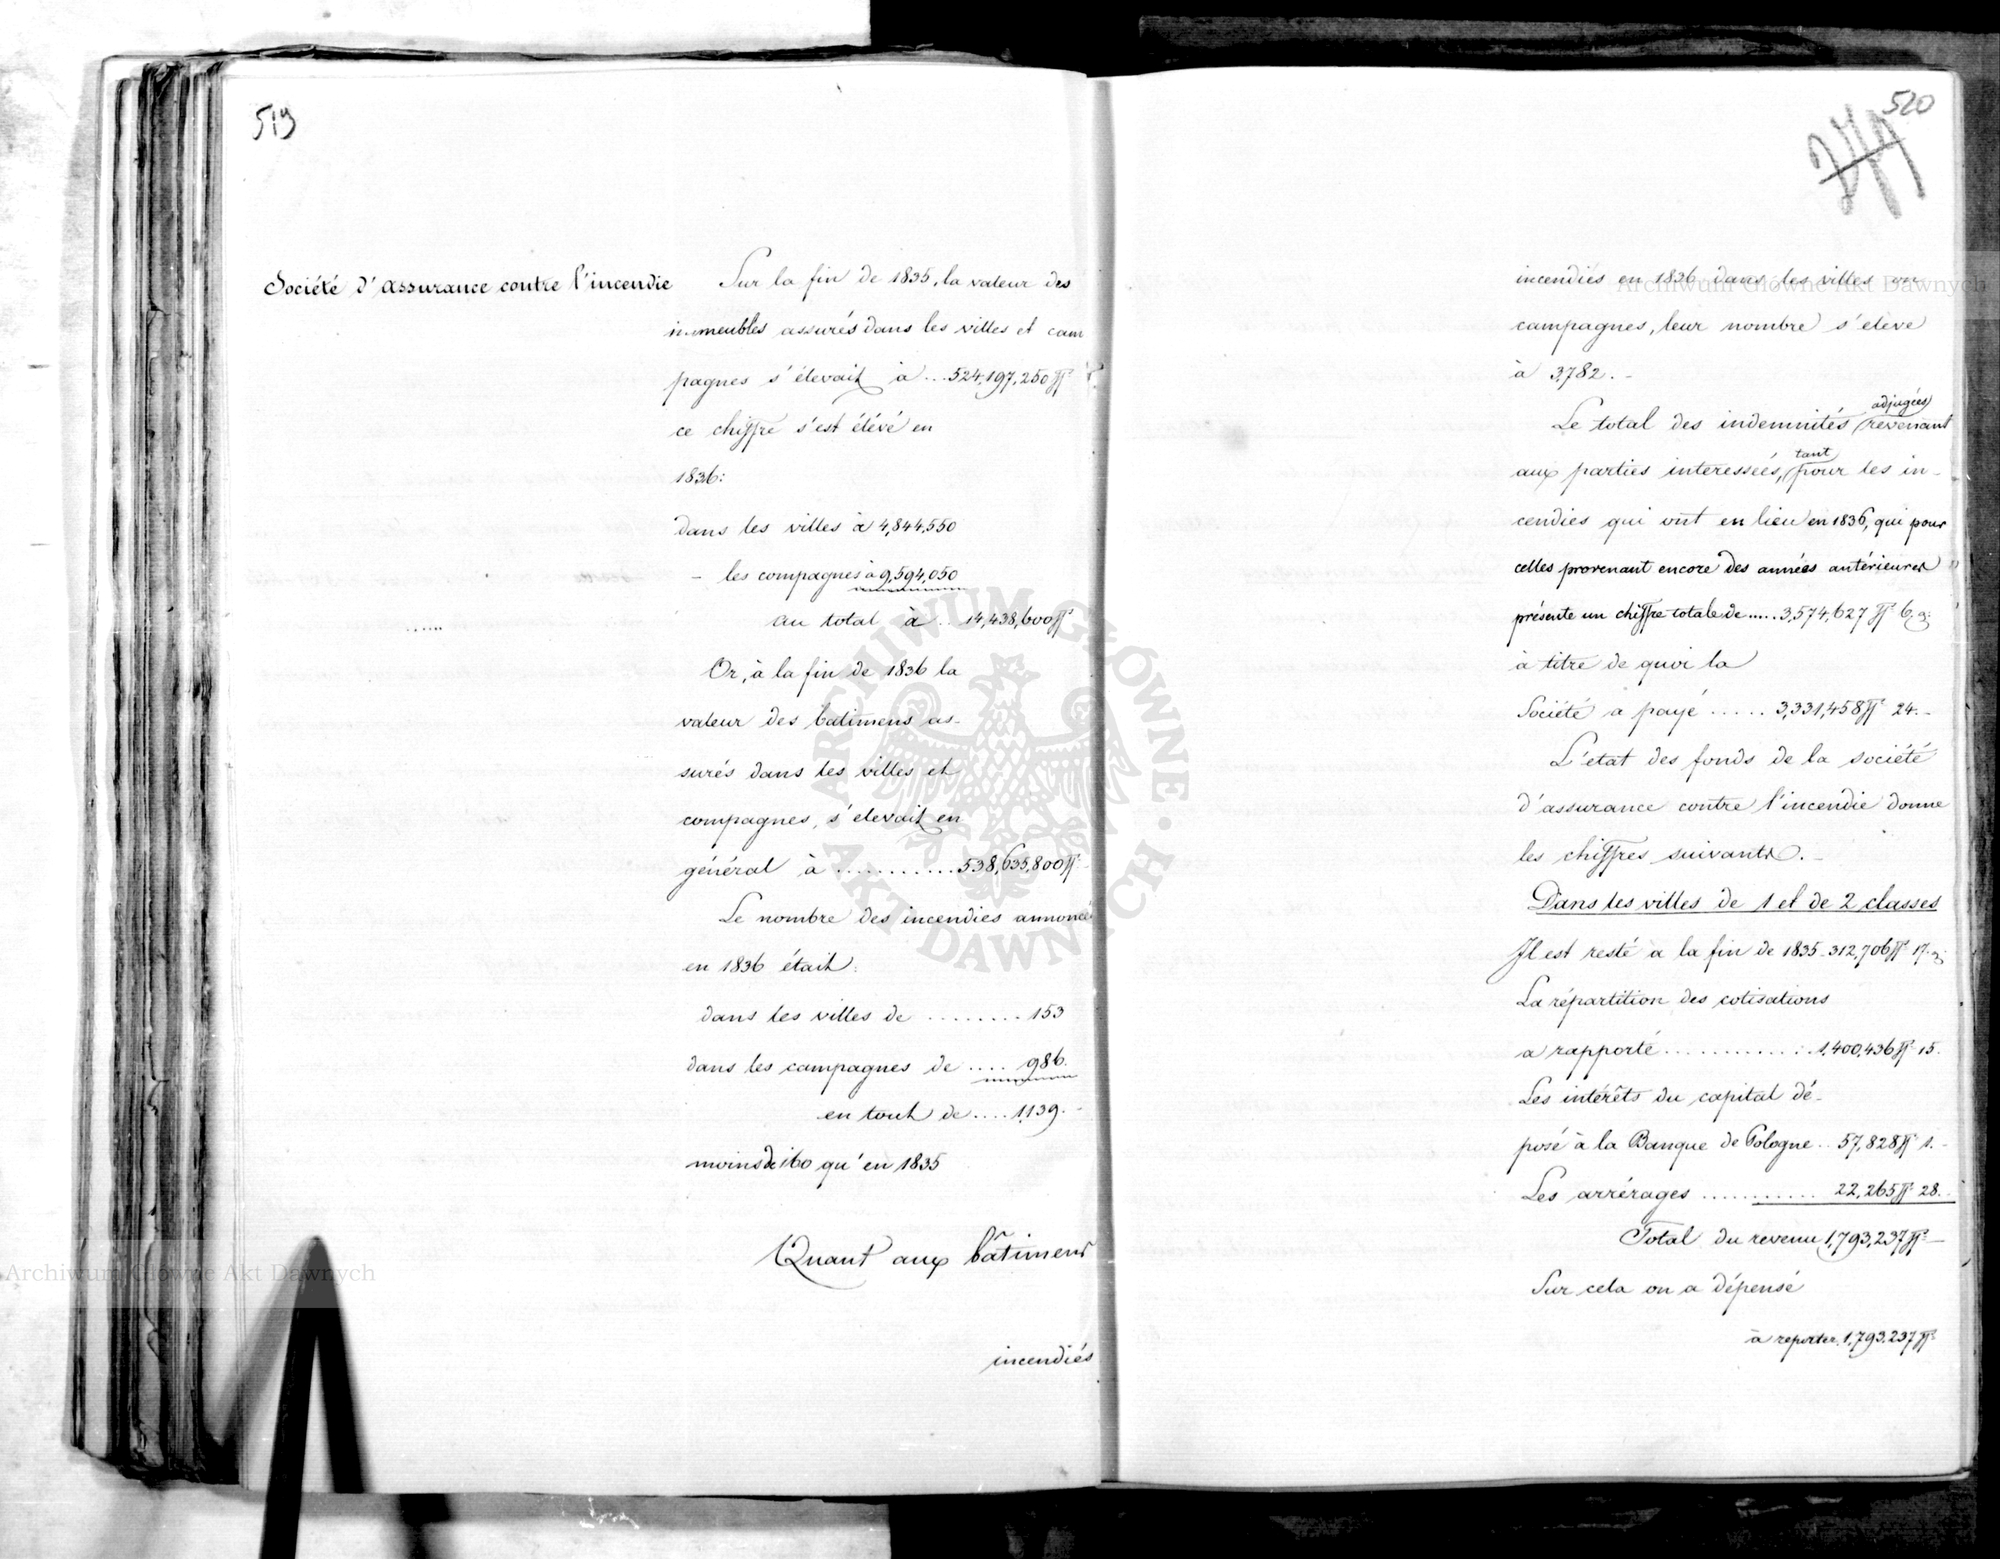 519
Société d'assurance contre l'incendie
Sur la fin de 1835, la valeur des
immeubles assurés dans les villes et cam
pagnes s'élevait à ... 524,197,250 ff
ce chiffre s'est élévé en
1836:
dans les villes à 4,844,550
- les compagnes à 9,594,050
au total à .. 14,438,600 ff
Or, à la fin de 1836 la
valeur des batimens as-
surés dans les villes et
compagnes, s'elevait en
général à ........... 538,635,800 ff
Le nombre des incendies annoncés
en 1836 était:
dans les villes de ........ 153
dans les campagnes de .... 986.
en tout de .... 1139.-
moins de 160 qu'en 1835
Quant aux bâtimens
incendiés
520
incendiés en 1836 dans les villes ou
campagnes, leur nombre s'eleve
à 3,782.-
adjugées
Le total des indemnités (revenant
tant
aux parties interesseés, (pour les in-
cendies qui ont eu lieu en 1836, qui pour
celles provenant encore des années antérieures
présente un chiffre totale de ..... 3,574,627 ff 6. g:
à titre de quoi la
Société a payé ..... 3,331,458 ff 24.-
L'état des fonds de la société
d'assurance contre l'incendie donne
les chiffres suivants.-
Dans les villes de 1 et de 2 classes
Il est resté a la fin de 1835 - 312,706 ff 17. g:
La répartition des cotisations
a rapporté ............ 1,400,436 ff 15.
Les intérêts du capital dé-
posé à la Banque de Pologne .. 57,828 ff 1.-
Les arrérages ........... 22,265 ff 28.-
Total du revenu 1,793,237 ff -
Sur cela on a dépensé
à reporter 1,793,237 ff
Archiwum Główne Akt Dawnych
ARCHIWUM GŁÓWNE AKT DAWNYCH
Archiwum Główne Akt Dawnych